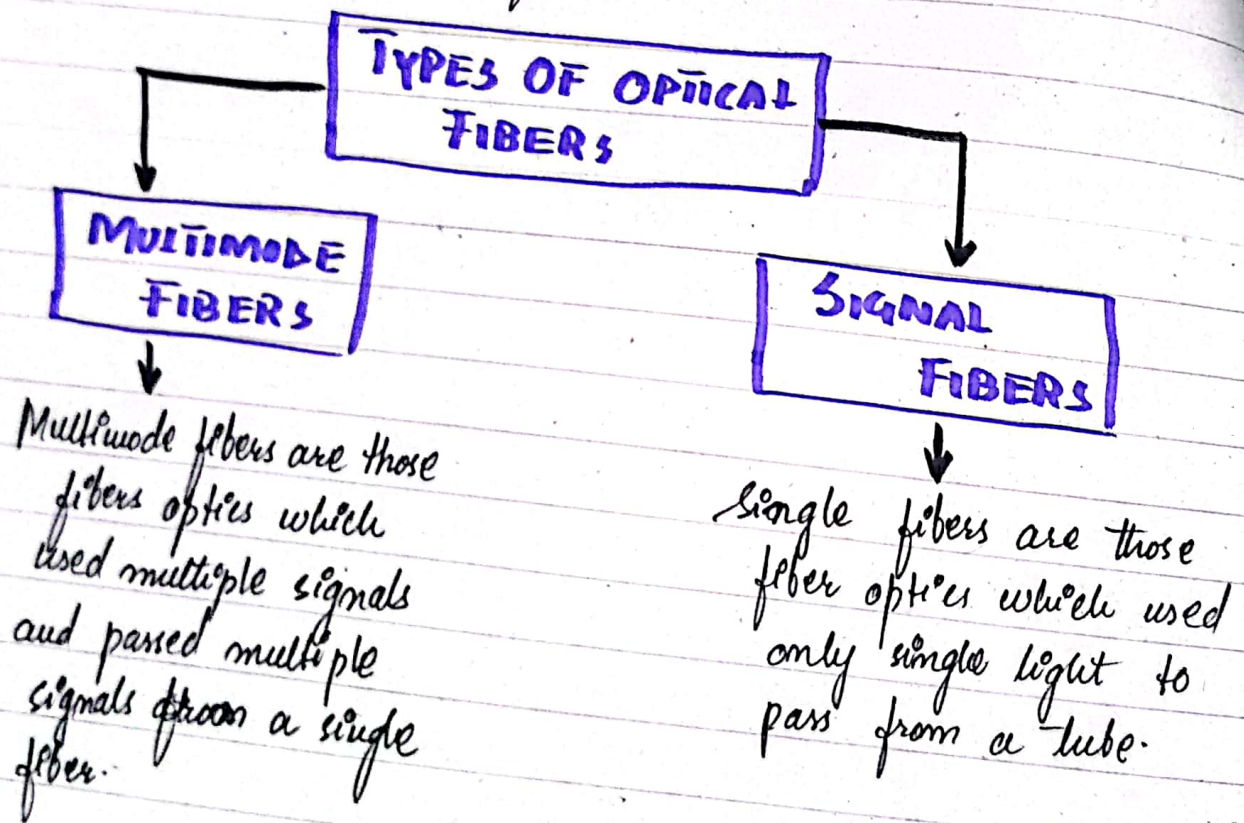 TYPES OF OPTICAL
FIBERS
MULTIMODE
FIBERS
SIGNAL
FIBERS
Multimode fibers are those
fibers optics which
used multiple signals
and passed multiple
signals from a single
fiber.
single fibers are those
fiber optics which used
only single light to
pass from a tube.